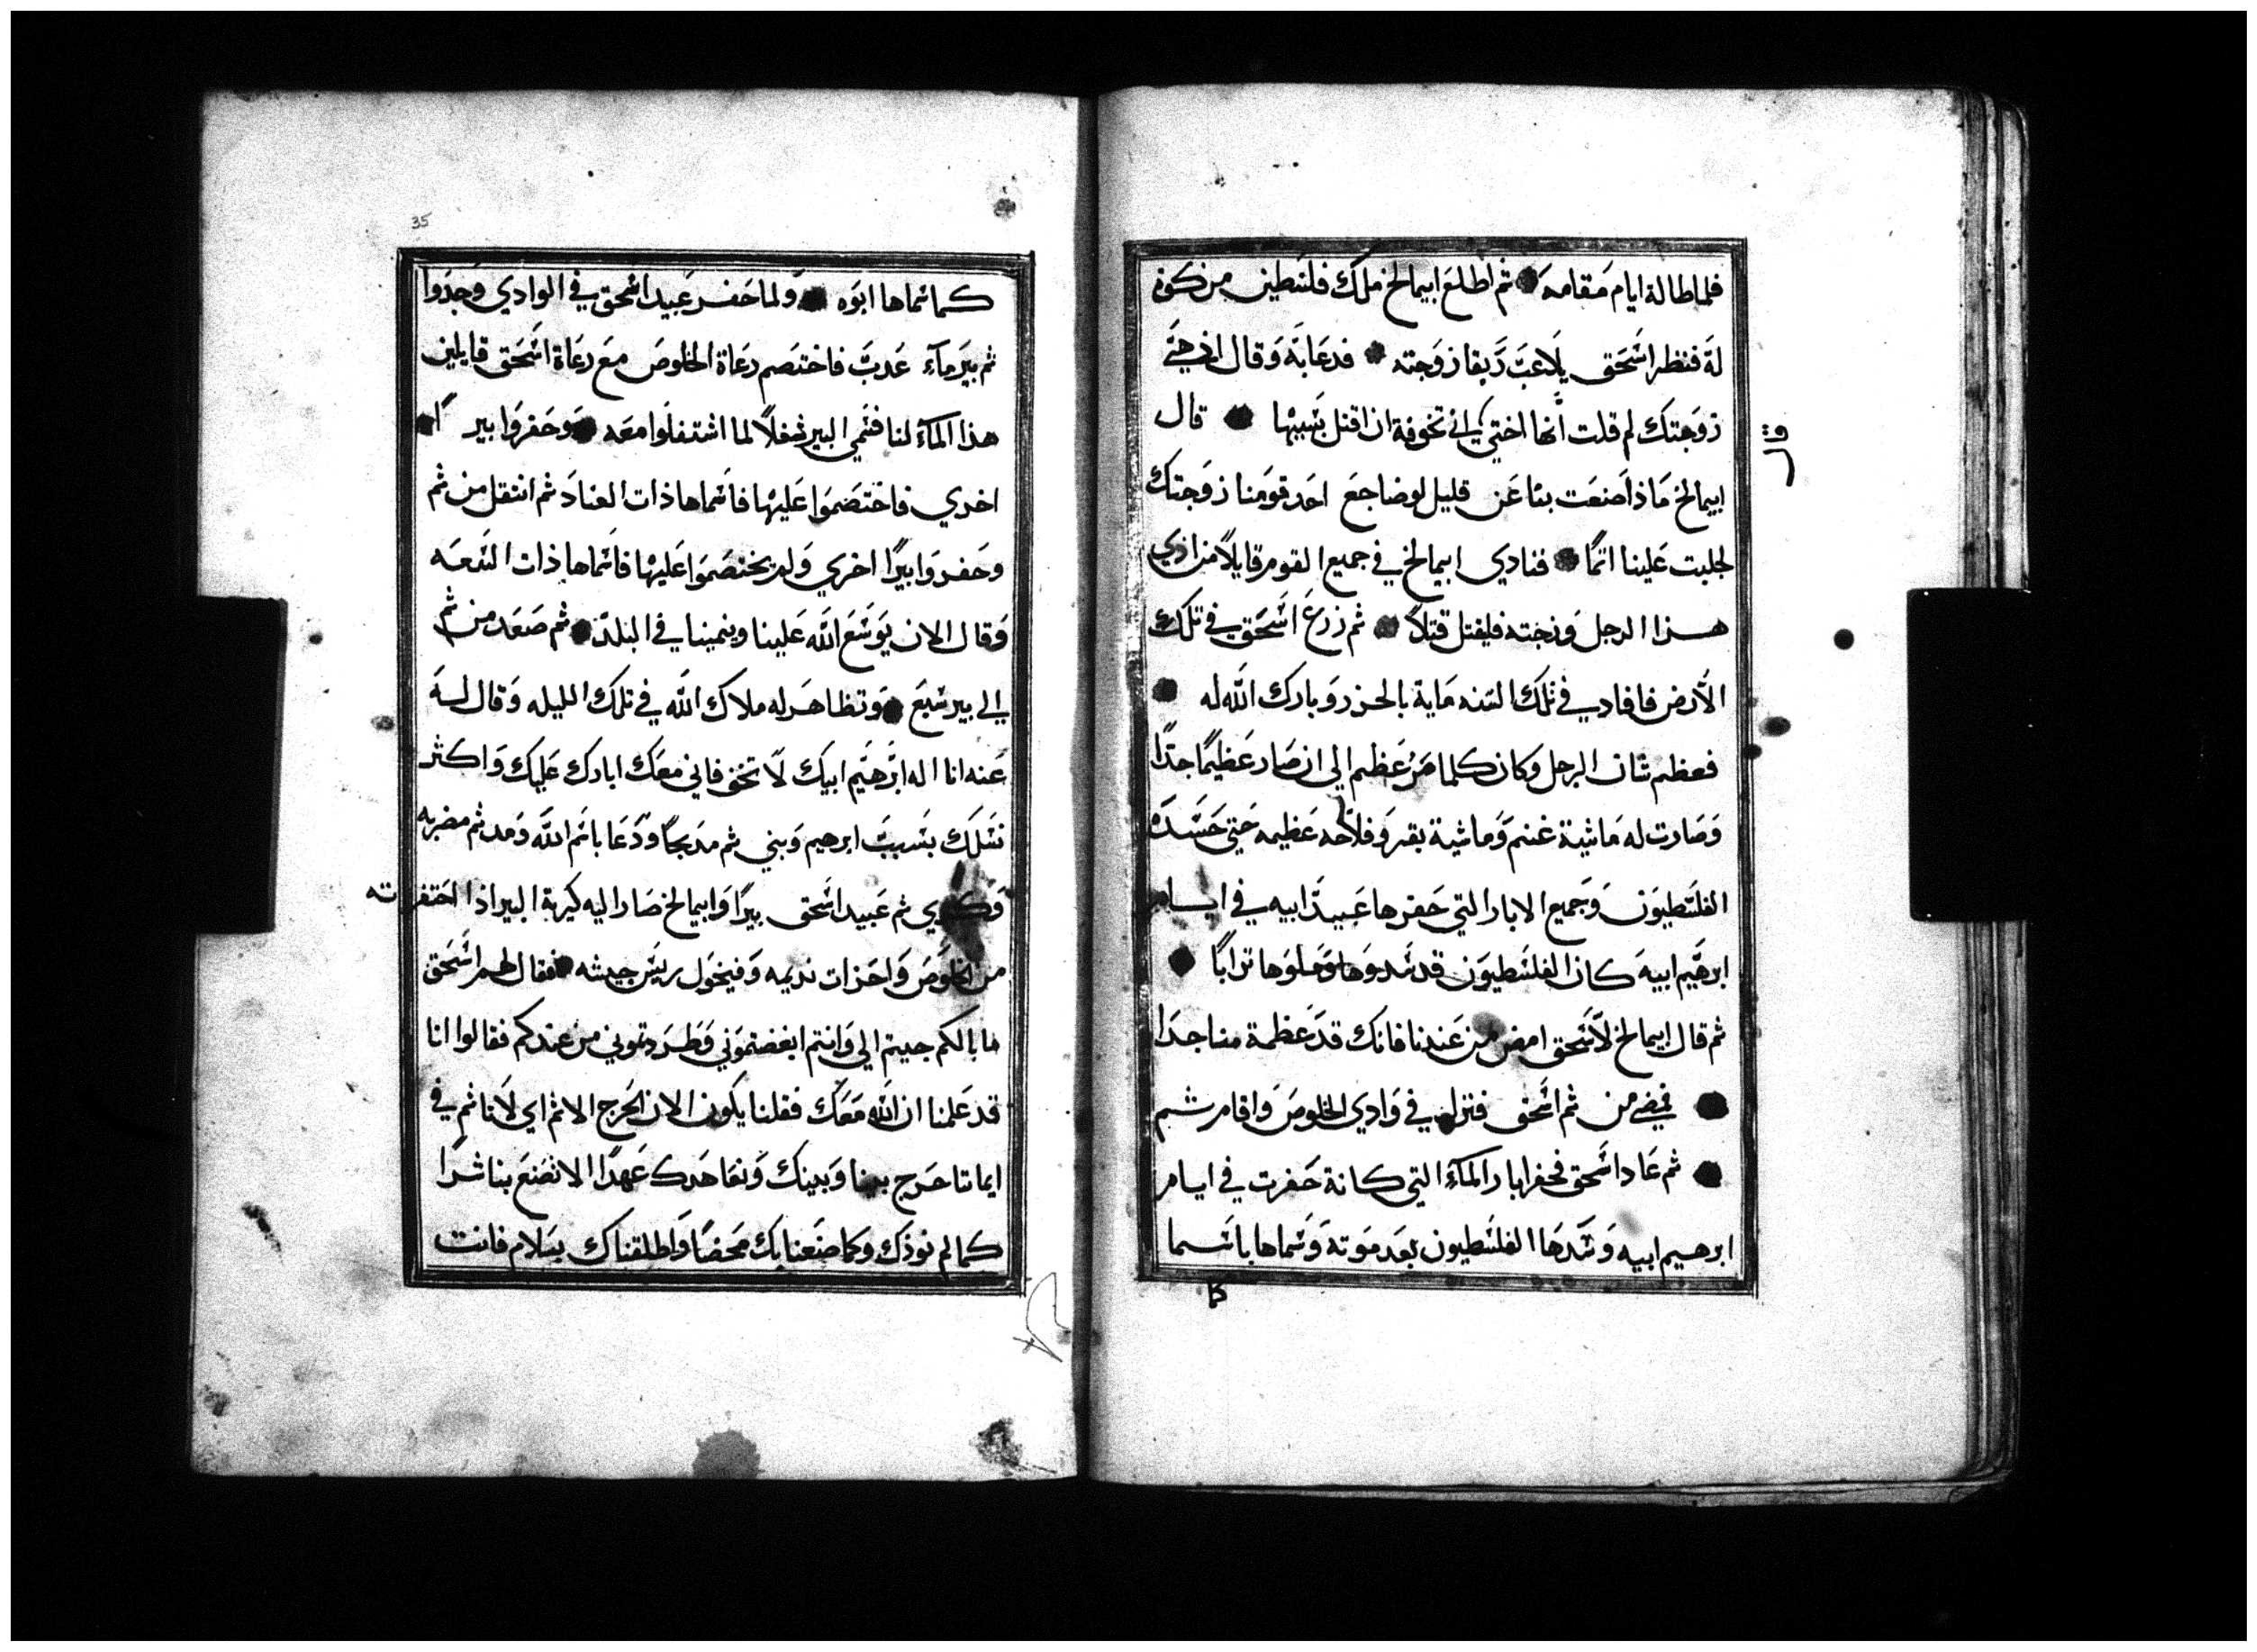 فلما طالة ايام مقامه ثم اطلع ابيمالخ ملك فلسطين من كوة
له فنظر اسحق يلاعب ريقا زوجته فدعا به وقال اذ هي
زوجتك لم قلت انها اختي لاني تخوفة ان اقتل بسببها قال
قال
ابيمالخ ماذا صنعت بنا عن قليل لو ضاجع احد قومنا زوجتك
لجلبت علينا اثما فنادي ابيمالخ في جميع القوم قايلا من اذي
هذا الرجل وزجته فليقتل قتلا ثم زرع اسحق في تلك
الارض فافاد في تلك السنه ماية بالحزر وبارك الله له
فعظم شان الرجل وكان كلما مر عظم الي ان صار عظيما جدا
وصارت له ماشية غنم وماشية بقر وفلاحه عظيمه حتي حسده
الفلسطيون وجميع الابار التي حفرها عبيد ابيه في ايام
ابرهيم ابيه كان الفلسطيون قد سدوها وملوها ترابا
ثم قال ابيمالخ لاسحق امض من عندنا فانك قد عظمة منا جدا
فمضي من ثم اسحق فنزل في وادي الخلوص واقام ثم
ثم عاد اسحق فحفر ابار المآء التي كانة حفرت في ايام
ابرهيم ابيه وسدها الفلسطيون بعد موته وسماها باسما
كما
35
كما سماها ابوه ولما حفر عبيد اسحق في الوادي وجدوا
ثم بير مآء عدب فاختصم رعاة الخلوص مع رعاة اسحق قايلين
هذا المآء لنا فسمي البير شغلا لما اشتغلوا معه وحفروا بيرا
اخري فاختصموا عليها فاسماها ذات العناد ثم انتقل من ثم
وحفروا بيرا اخري ولم يختصموا عليها فاسماها ذات السعه
وقال الان يوسع الله علينا وينمينا في البلد ثم صعد من ثم
الي بير سبع وتظاهر له ملاك الله في تلك الليله وقال له
عنه انا اله ابرهيم ابيك لا تخف فاني معك ابارك عليك واكثر
نسلك بسبب ابرهيم وبني ثم مدبحا ودعا باسم الله ومد ثم مضربه
وكري ثم عبيد اسحق بيرا وابيمالخ صار اليه كيربة البير اذا احتفرته
من الخلوص واحزات نديمه وفيخول ريس جيشه فقال لهم اسحق
ما بالكم جيتم الي وانتم ابغضتموني وطردتموني من عندكم فقالوا انا
قد علمنا ان الله معك فقلنا يكون الان الحرج الاثم اي لاناثم في
ايماننا حرج بيننا وبينك ونعاهدك عهدا الا تصنع بنا شرا
كما لم نوذك وكما صنعنا بك محضا واطلقناك بسلام فانت